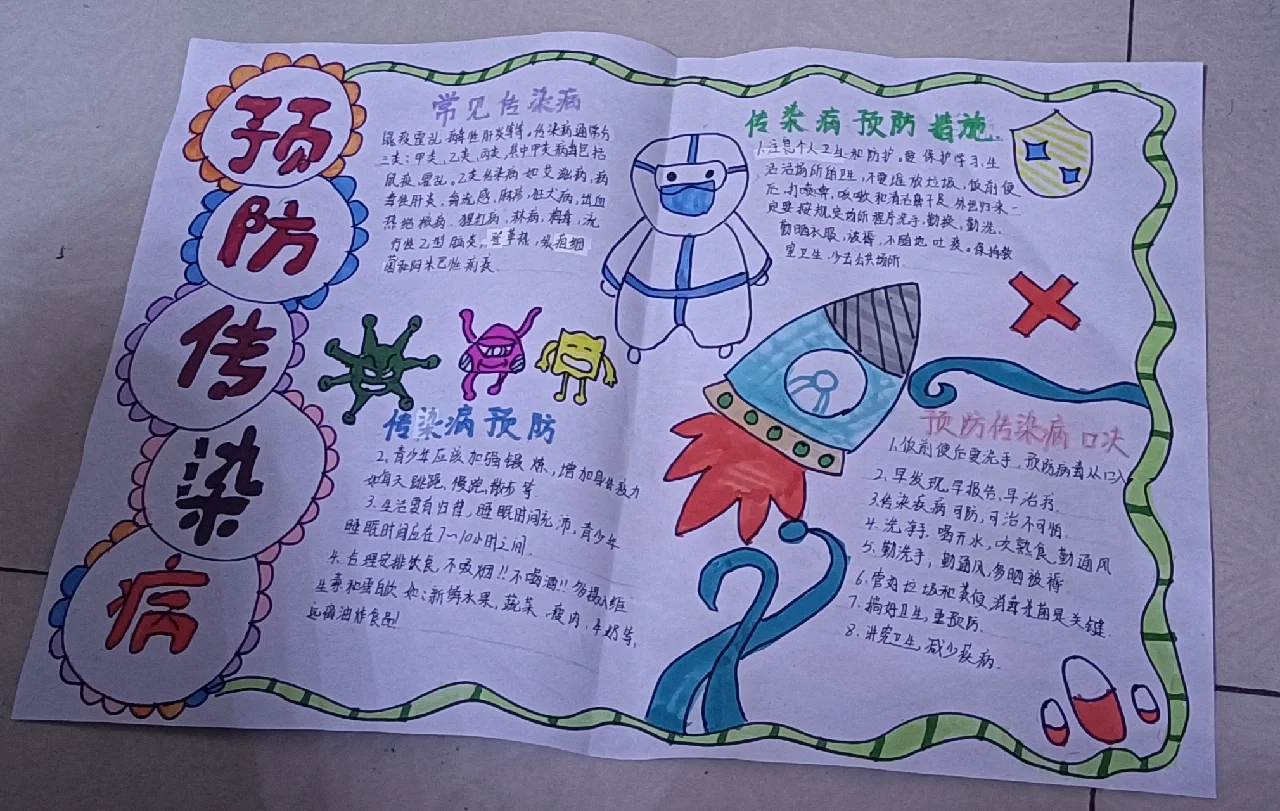 预防传染病
常见传染病
鼠疫霍乱 病毒性肝炎等等。传染病通常分
三类：甲类，乙类，丙类，其中甲类病毒包括
鼠疫、霍乱。乙类传染病 如 艾滋病，病
毒性肝炎，禽流感，麻疹，狂犬病，出血
热 结核病，猩红热，淋病，梅毒，流
行性乙型脑炎，登革热，炭疽细
菌和阿米巴性痢疾
传染病预防
2、青少年应该加强锻炼，增加身体抵力
如每天跳跑，慢跑，散步等
3、生活要有归律，睡眠时间充沛，青少年
睡眠时间应在7~10小时之间.
4、合理安排饮食，不吸烟!!不喝酒!! 多摄入维
生素和蛋白 如：新鲜水果，蔬菜、瘦肉、牛奶等，
远离油炸食品!
传染病预防措施..
1.注意个人卫生和防护。要保护学习，生
活活场所的卫生，不要堆放垃圾，饭前便
后，打喷嚏，咳嗽和清洁鼻子及 外出归来一
定要按规定场所程序洗手，勤换，勤洗、
勤晒衣服，被褥，不随地吐痰。保持教
室卫生，少去公共场所
预防传染病口决
1、饭前便后要洗手，预防病毒从口入
2、早发现，早报告，早治疗.
3.传染疾病可防，可治不可怕.
4、洗净手，喝开水，吃熟食，勤通风
5、勤洗手，勤通风，多晒被褥
6、管好垃圾和粪便，消毒杀菌是关键.
7、搞好卫生，重预防.
8、讲究卫生，减少疾病.